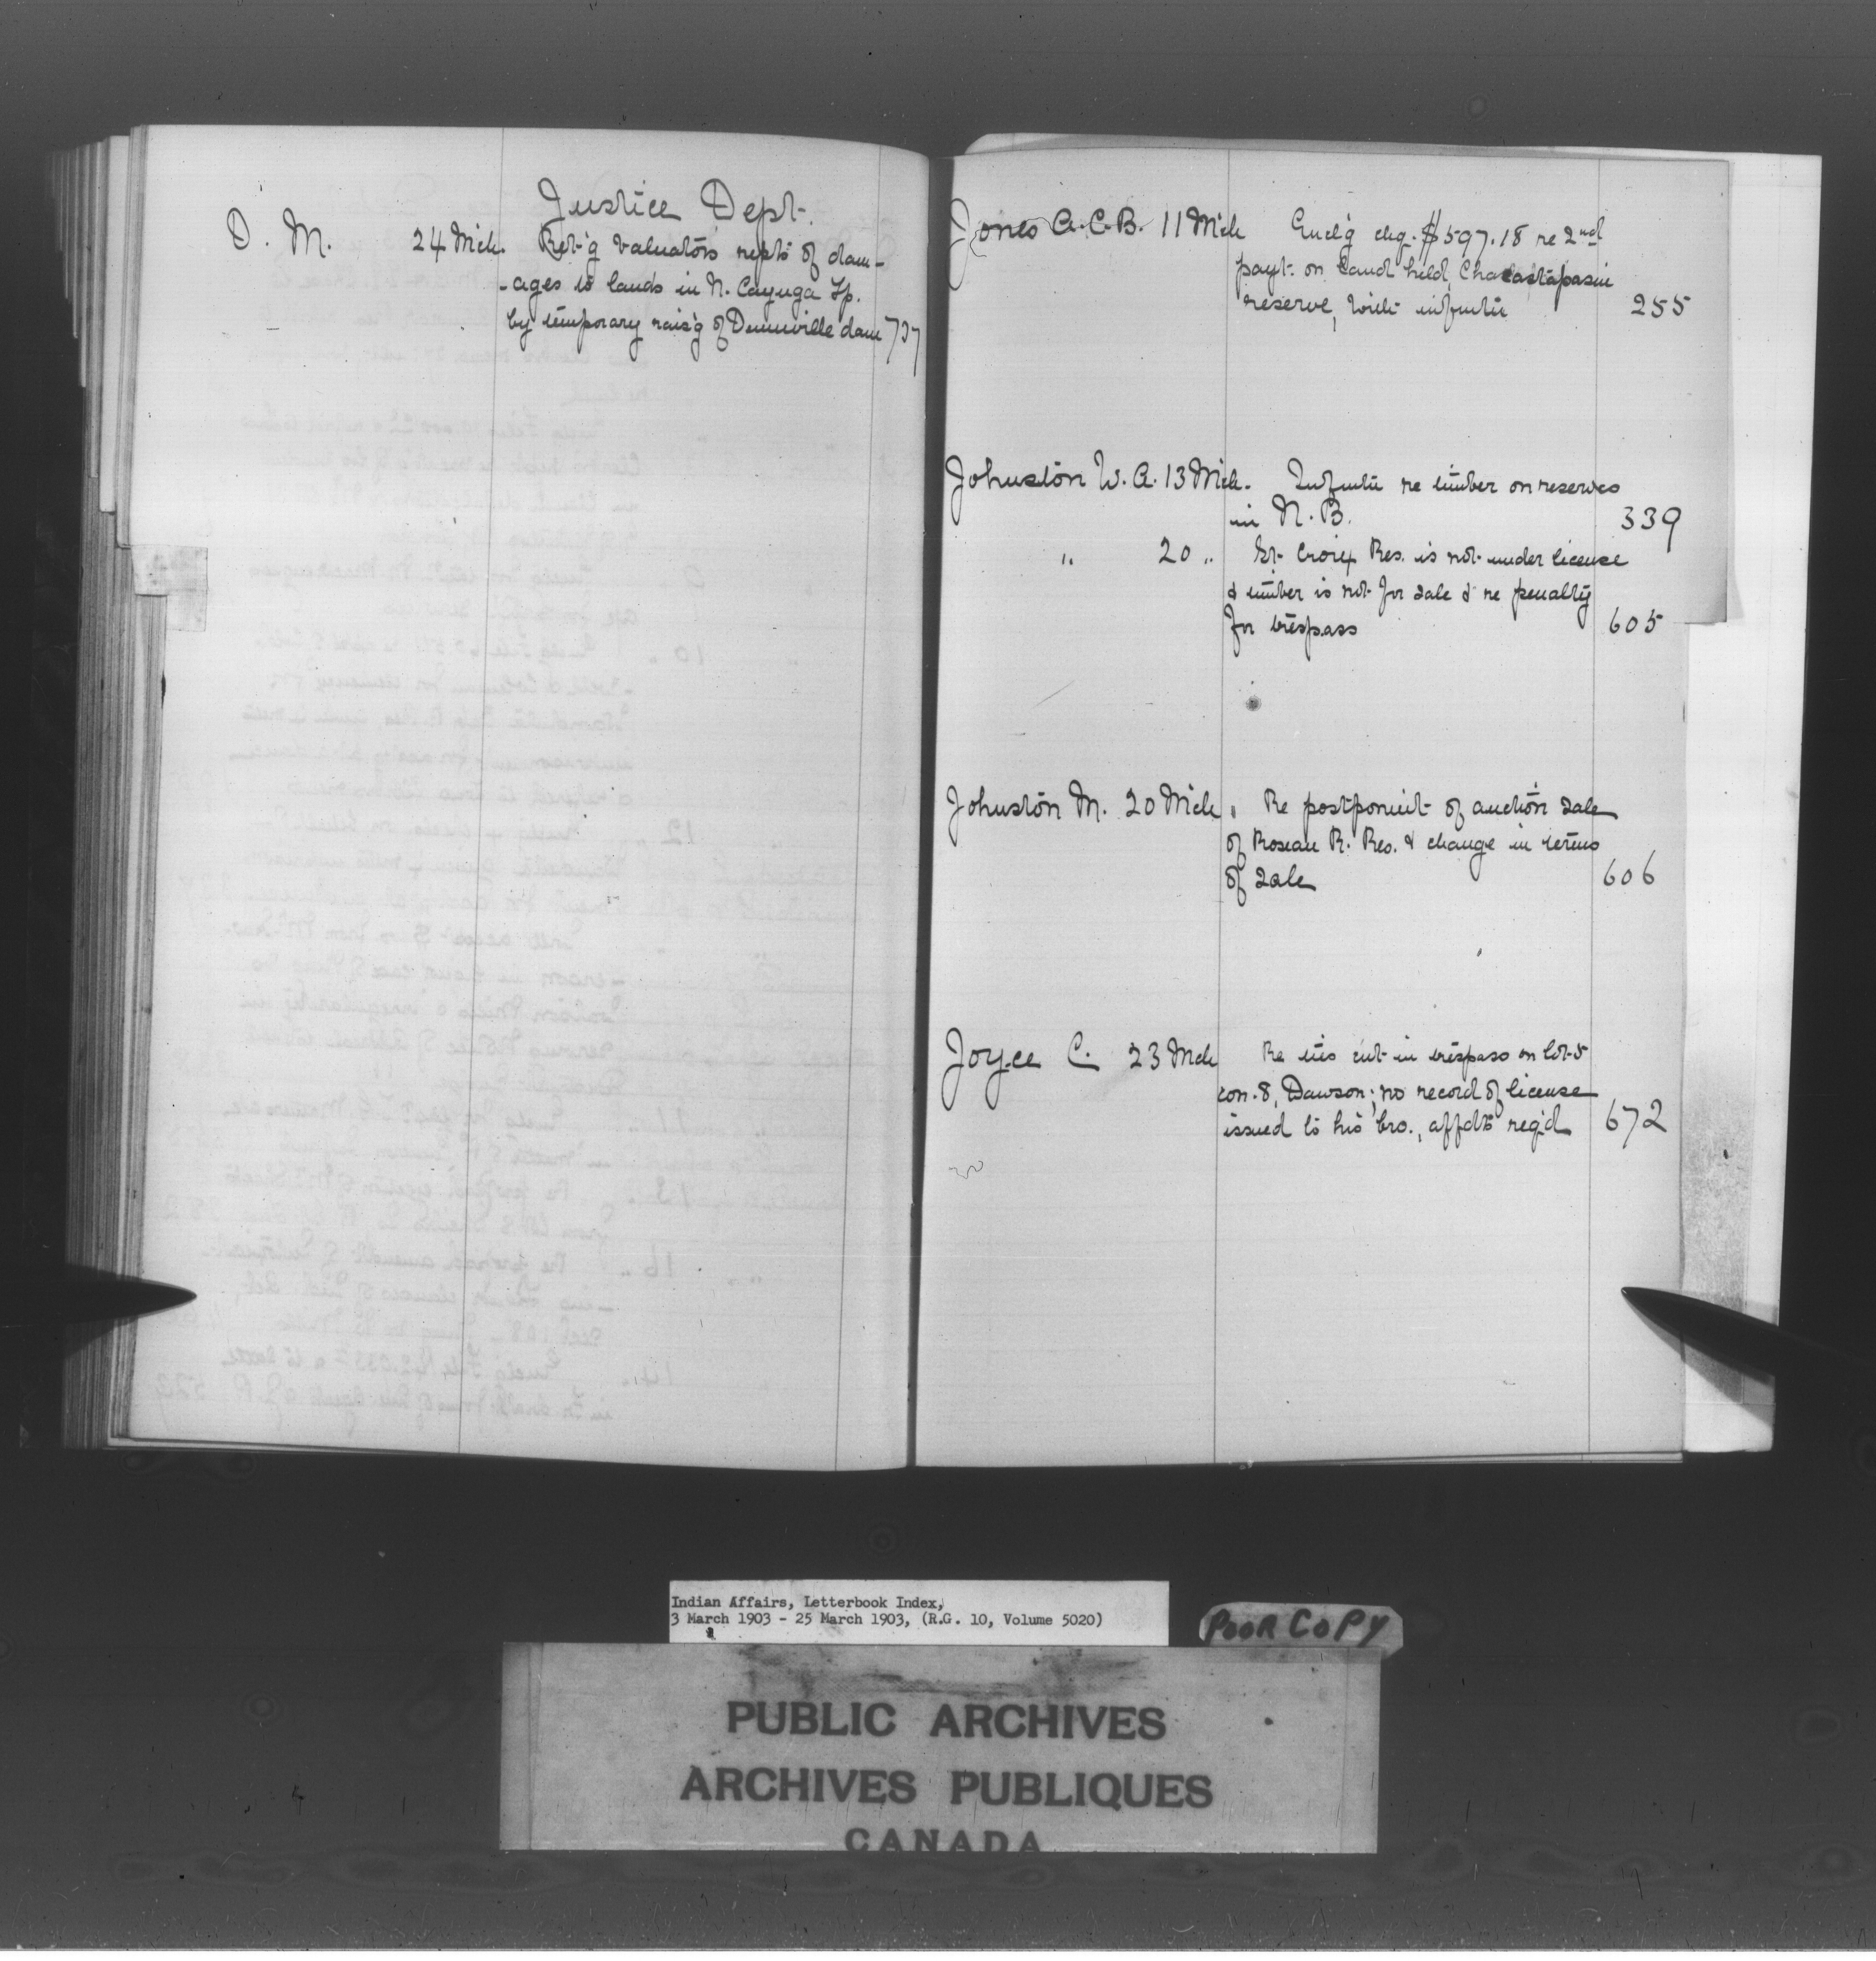 Justice Dept.
D. M. 24 Mch. Ret'g valuators repts of dam-
-ages to lands in N. Cayuga Tp.
by temporary rais'g of Dunnville dam 737
Jones A. C. B. 11 Mch Encl'g chq. $597.18 re 2nd
payt. on land held, Chacastapasin
reserve, with infmtn 255
Johnston W. A. 13 Mch. Infmtn re timber on reserves
in N. B. 339
" 20 " St. Croix Res. is not under license
& timber is not for sale & re penalty
for trespass 605
Johnston M. 20 Mch " Re postponmt of auction sale
of Roseau R. Res. & change in terms
of sale 606
Joyce C. 23 Mch Re ties cut in trespass on lot 5
con. 8, Dawson; no record of license
issued to his bro., affdts req'd 672
Indian Affairs, Letterbook Index,
3 March 1903 - 25 March 1903, (R.G. 10, Volume 5020)
POOR COPY
PUBLIC ARCHIVES
ARCHIVES PUBLIQUES
CANADA